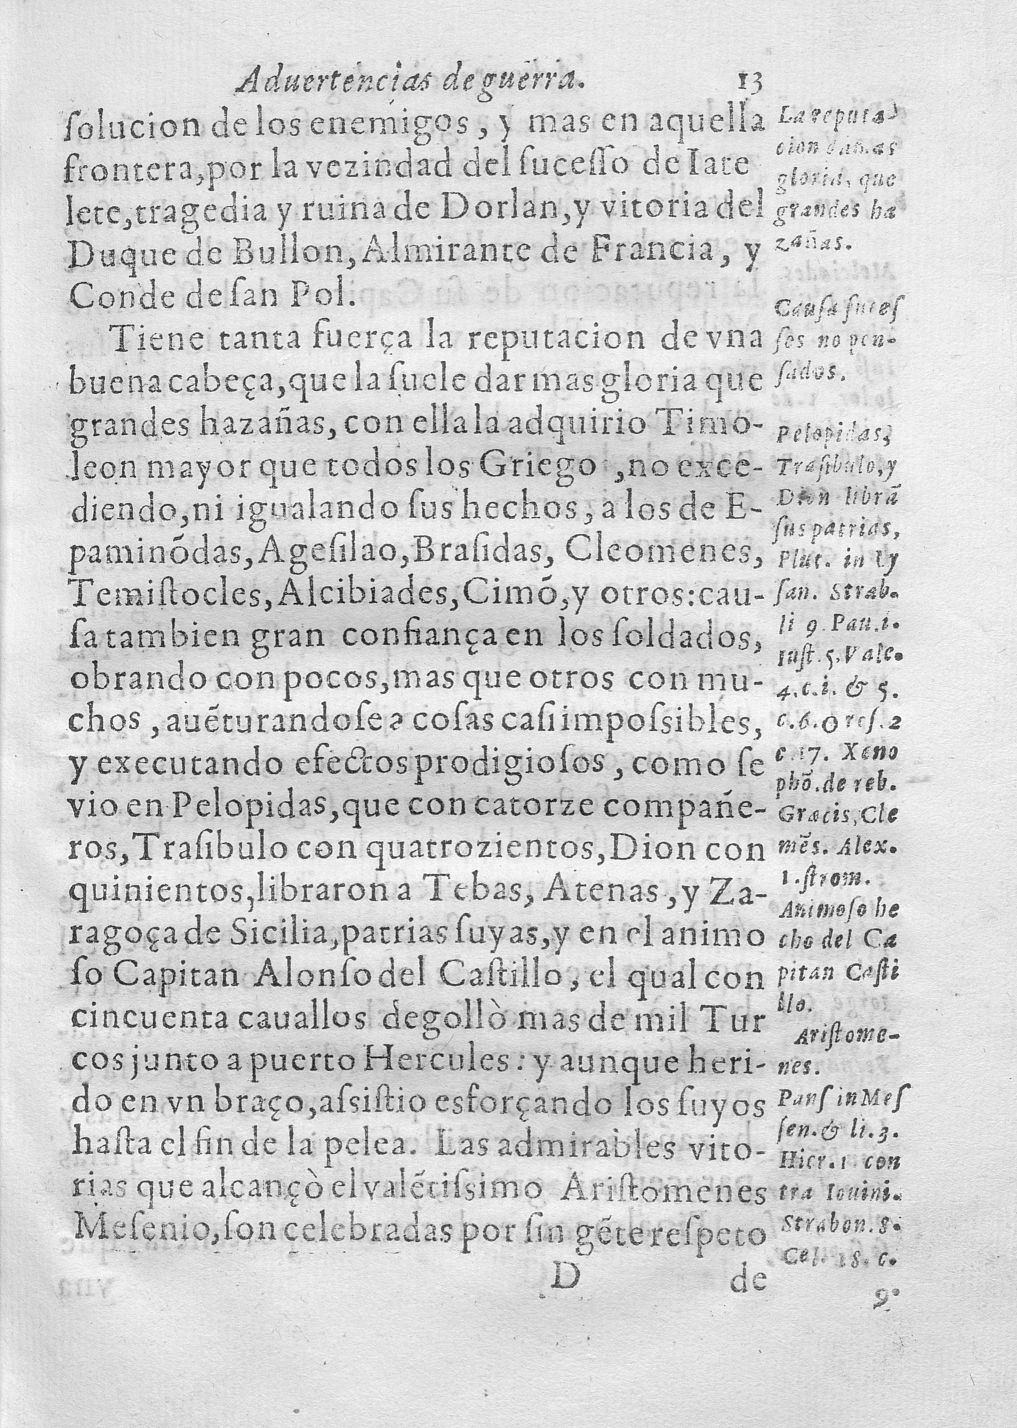 Aduertencias de guerra. 13
ſolucion de los enemigos, y mas en aquella
frontera, por la vezindad del ſuceſſo de Iate
lete, tragedia y ruina de Dorlan, y vitoria del
Duque de Bullon, Almirante de Francia, y
Conde de ſan Pol.
Tiene tanta fuerça la reputacion de vna
buena cabeça, que la ſuele dar mas gloria que
grandes hazañas, con ella la adquirio Timo-
leon mayor que todos los Griego ,no exce-
diendo, ni igualando ſus hechos, a los de E-
paminõdas, Ageſilao, Braſidas, Cleomenes,
Temiſtocles, Alcibiades, Cimõ, y otros: cau-
ſa tambien gran confiança en los ſoldados,
obrando con pocos, mas que otros con mu-
chos, auẽturandoſe a coſas caſi impoſsibles,
y executando efectos prodigioſos, como ſe
vio en Pelopidas, que con catorze compañe-
ros, Traſibulo con quatrozientos, Dion con
quinientos, libraron a Tebas, Atenas, y Za-
ragoça de Sicilia, patrias ſuyas, y en el animo
ſo Capitan Alonſo del Caſtillo, el qual con
cincuenta cauallos degollò mas de mil Tur
cos junto a puerto Hercules: y aunque heri-
do en vn braço, aſsiſtio esforçando los ſuyos
haſta el fin de la pelea. Las admirables vito-
rias que alcançò el valẽtiſsimo Ariſtomenes
Meſenio, ſon celebradas por ſin gẽte reſpeto
D de
La reputa
cion da mas
gloria, que
grandes ha
zañas.
Cauſa ſuceſ
ſos no pen-
ſados.
Pelopidas,
Traſibulo, y
Dion librã
ſus patrias,
Plut. in Ly
ſan. Strab.
li 9. Pau. i.
Iuſt. 5. Vale.
4. c. i. & 5.
c. 6. Oroſ. 2
c. 17. Xeno
phõ. de reb.
Græcis, Cle
mẽs. Alex.
1. ſtrom.
Animoſo he
cho del Ca
pitan Caſti
llo.
Ariſtome-
nes.
Pauſ in Meſ
ſen. & li. 3.
Hier. 1 con
tra Iouini.
Strabon. 8.
Cel. 18. c.
9.